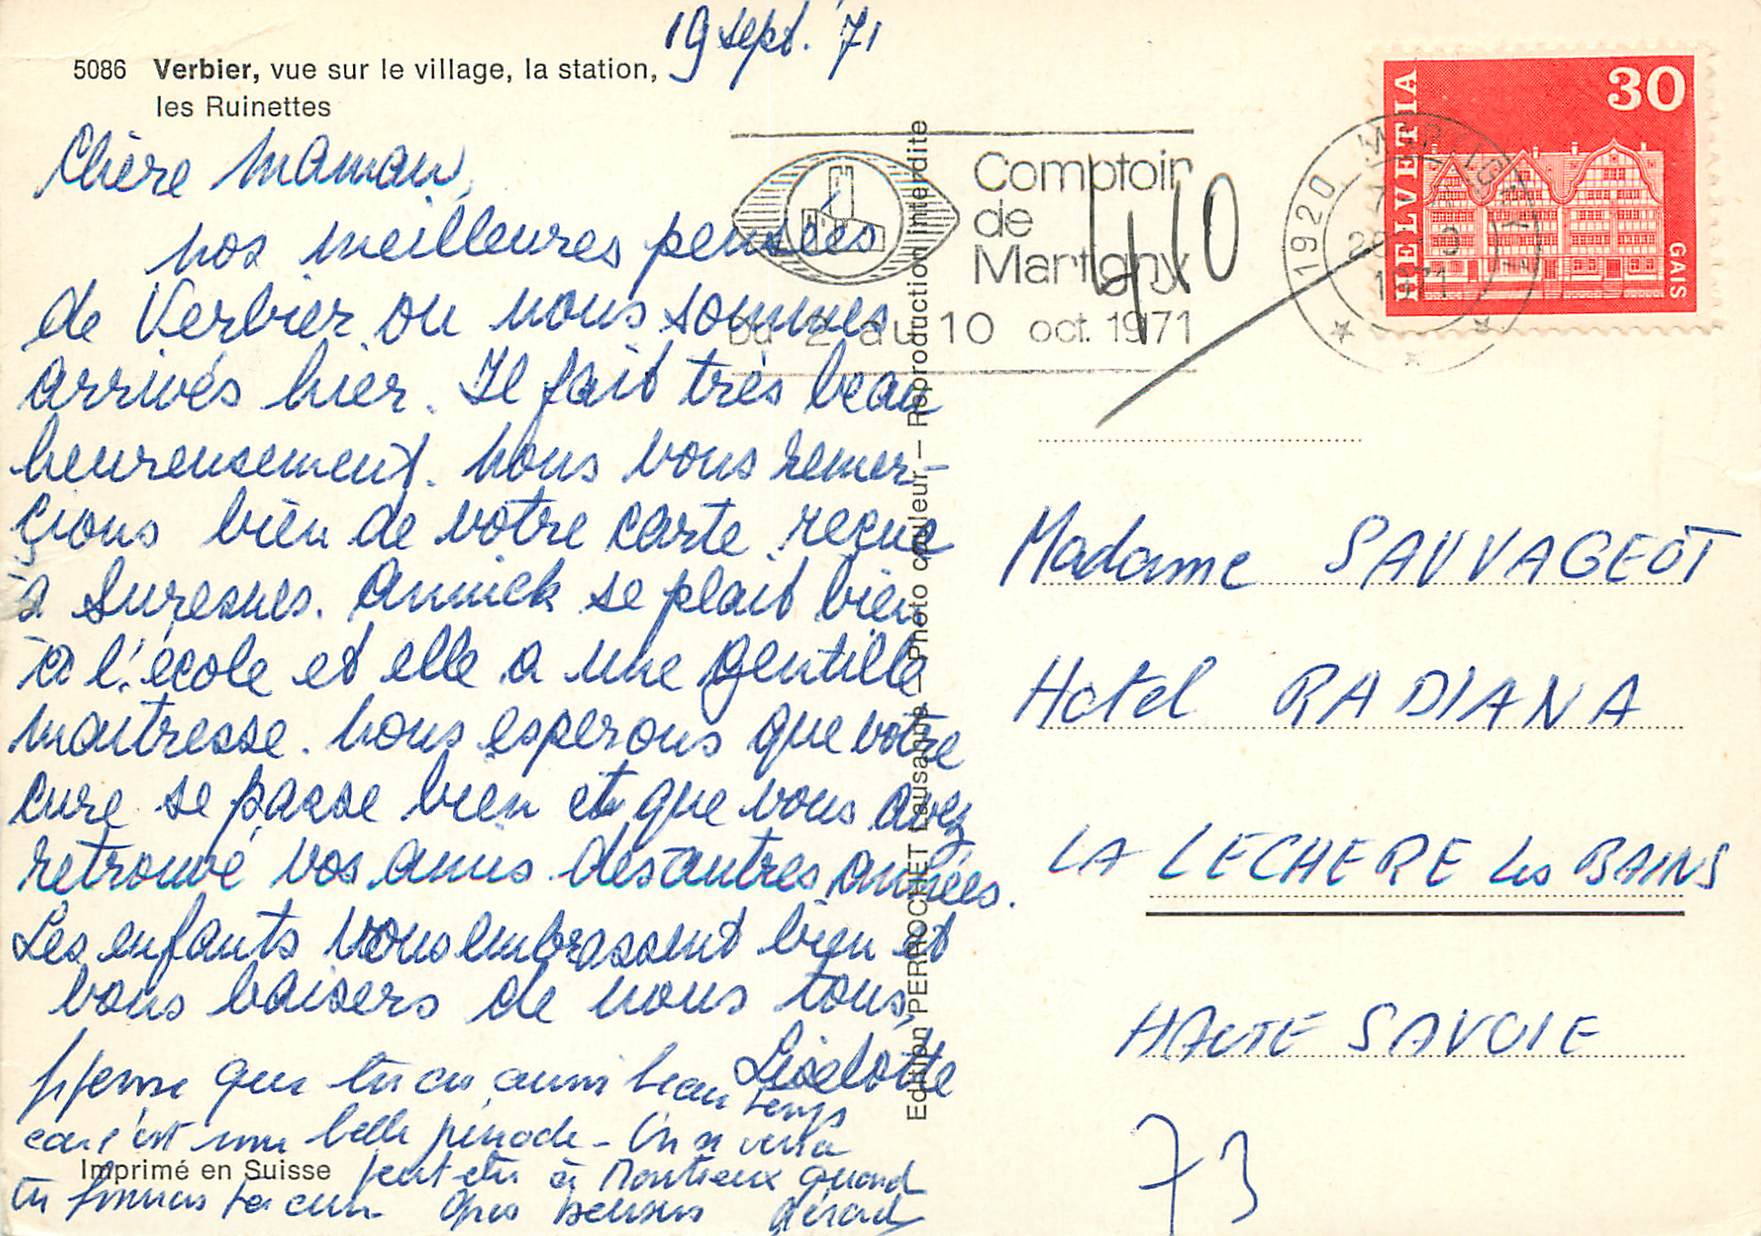 19 sept. 71
5086 Verbier, vue sur le village, la station,
les Ruinettes
Chère Maman,
nos meilleures pensées
de Verbier ou nous sommes
arrivés hier. Il fait très beau
heureusement. Nous vous remer-
çions bien de votre carte reçue
à Suresnes. Annick se plait bien
à l'école et elle a une gentille
maitresse. Nous esperons que votre
cure se passe bien et que vous avez
retrouvé vos amis des autres années.
Les enfants vous embrassent bien et
bons baisers de nous tous,
Liselotte
J'pense que tu as aussi beau temps
car c'est une belle période - On se verra
peut etre à Montreux quand
tu finiras ta cure Gros baisers Gérard
Imprimé en Suisse
Edition PERROCHET Lausanne – Photo couleur – Reproduction interdite
Comptoir
de
Martigny
du 2 au 10 oct. 1971
40
1920 MARTIGNY
1971
HELVETIA
30
GAIS
Madame SAUVAGEOT
Hotel RADIANA
LA LECHERE les BAINS
HAUTE SAVOIE
73